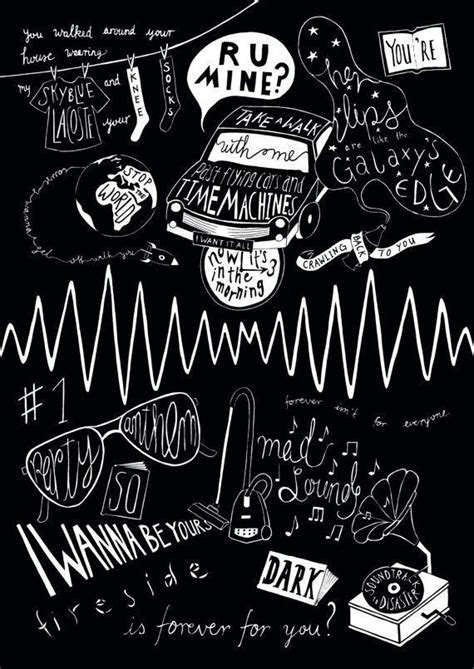 you walked around your
house wearing
my
SKYBLUE
LACOSTE
and
your
KNEE
SOCKS
R U
MINE?
YOU'RE
her
lips
are like the
Galaxy's
EDGE
TAKE A WALK
with me
past flying cars and
TIME MACHINES
I WANT IT ALL
now it's 3
in the
morning
STOP
THE
WORLD
wanna get off with you
CRAWLING
BACK
TO YOU
#1
party
anthem
SO
I WANNA BE YOURS
forever isn't for everyone
mad
Sounds
DARK
SOUNDTRACK
TO
DISASTER
fireside
is forever for you?